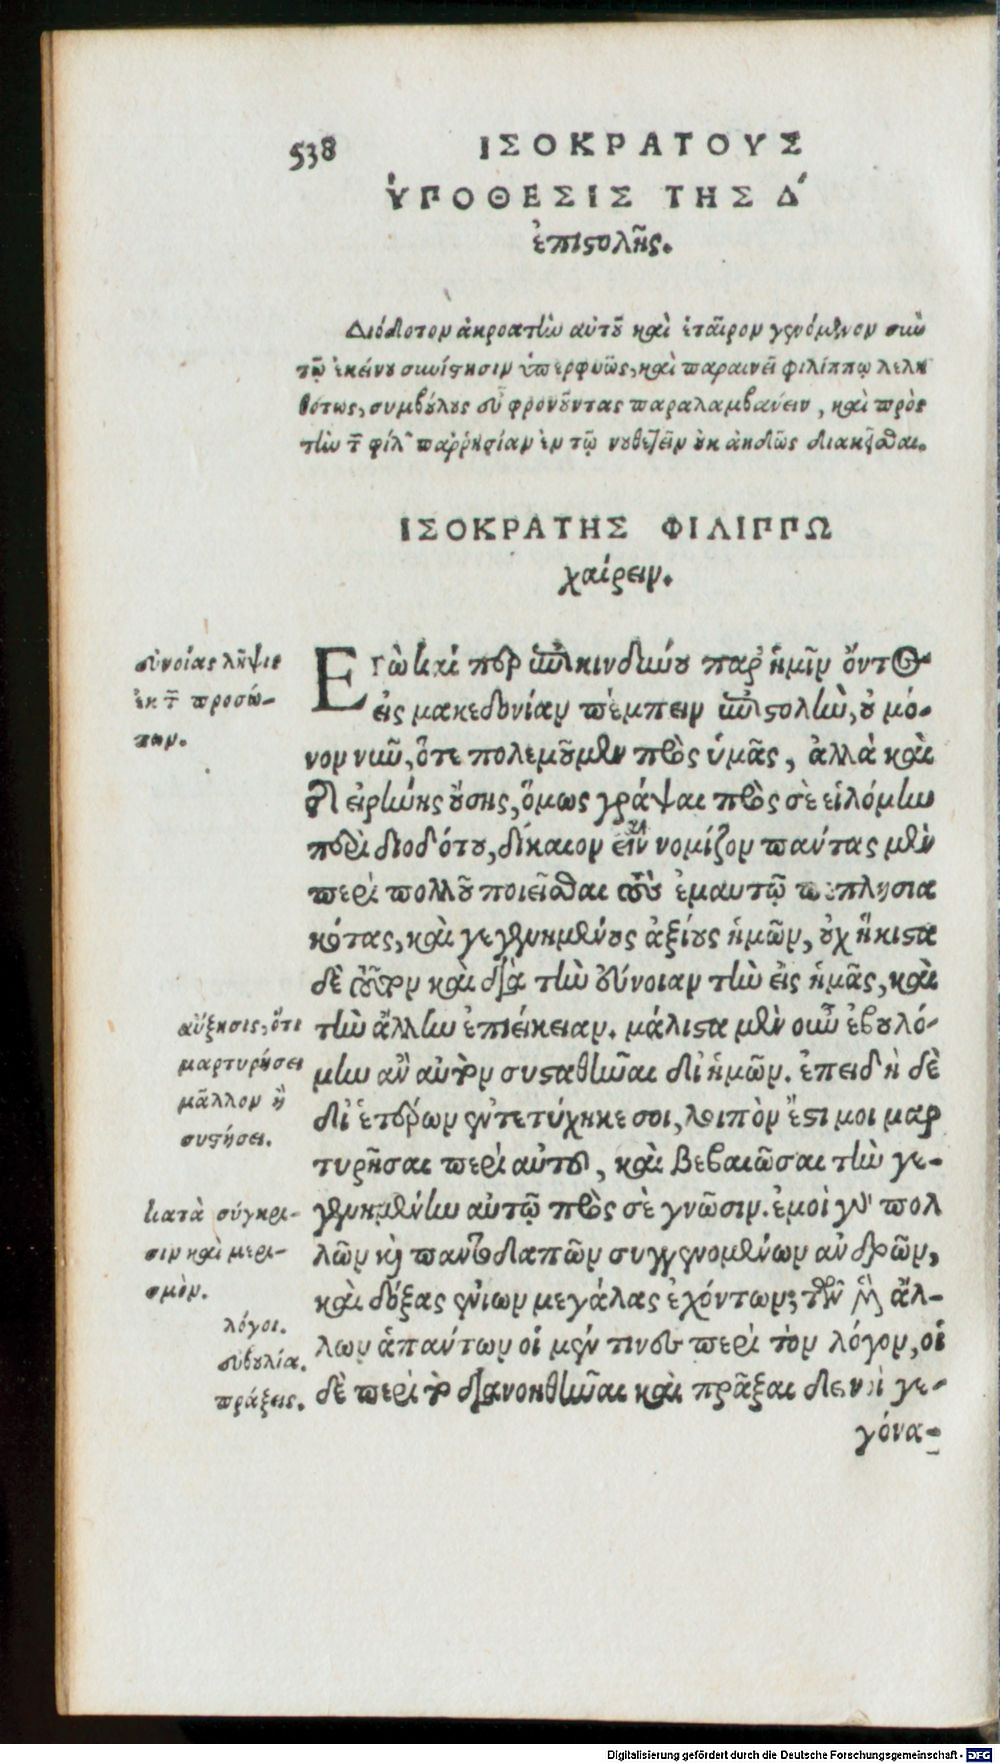 538 ΙΣΟΚΡΑΤΟΥΣ
ὙΠΟΘΕΣΙΣ ΤΗΣ Δ΄
ἐπιστολῆς.
Διόδοτον ἀκροατὴν αὐτοῦ καὶ ἑταῖρον γενόμενον σὺν
τῷ ἐκείνου συνίστησιν ὑπερφυῶς, καὶ παραινεῖ φιλίππῳ λελη
θότως, συμβούλους εὖ φρονοῦντας παραλαμβάνειν, καὶ πρὸς
τὴν τ͂ φίλ παῤῥησίαν ἐν τῷ νουθετεῖν οὐκ ἀηδῶς διακεῖσθαι.
ΙΣΟΚΡΑΤΗΣ ΦΙΛΙΠΠΩ
χαίρειν.
εὐνοίας λῆψις
ἐκ τ͂ προσώ-
πων.
Εγὼ καί περ ἐπικινδύνου παρ' ἡμῖν ὄντος
εἰς μακεδονίαν πέμπειν ἐπιστολὴν, οὐ μό-
νον νῦν, ὅτε πολεμοῦμεν πρὸς ὑμᾶς, ἀλλὰ καὶ
τῆς εἰρήνης οὔσης, ὅμως γράψαι πρὸς σὲ εἱλόμην
περὶ διοδότου, δίκαιον εἶναι νομίζον παντας μὲν
περὶ πολλοῦ ποιεῖσθαι τοὺς ἐμαυτῷ πεπλησια
κότας, καὶ γεγενημένους ἀξίους ἡμῶν, οὐχ ἥκιστα
δὲ τοῦτον καὶ διὰ τὴν εὔνοιαν τὴν εἰς ἡμᾶς, καὶ
τὴν ἄλλην ἐπιείκειαν. μάλιστα μὲν οὖν ἐβουλό-
μην ἂν αὐτὸν συσταθῆναι δι' ἡμῶν. ἐπειδὴ δὲ
δι' ἑτέρων ἐντετύχηκε σοι, λοιπὸν ἔστι μοι μαρ
τυρῆσαι περὶ αὐτοῦ, καὶ βεβαιῶσαι τὴν γε-
γενημένην αὐτῷ πρὸς σὲ γνῶσιν. ἐμοὶ γὰρ πολ
λῶν καὶ παντοδαπῶν συγγενομένων ἀνδρῶν,
καὶ δόξας ἐνίων μεγάλας ἐχόντων, τῶν μὲν ἄλ-
λων ἁπάντων οἱ μέν τινες περὶ τὸν λόγον, οἱ
δὲ περὶ τὸ διανοηθῆναι καὶ πρᾶξαι δεινοὶ γε-
γόνα-
αὔξησις, ὅτι
μαρτυρήσει
μᾶλλον ἢ
συστήσει.
κατὰ σύγκρι-
σιν καὶ μερι-
σμὸν.
λόγοι.
εὐβουλία.
πράξεις.
Digitalisierung gefördert durch die Deutsche Forschungsgemeinschaft - DFG